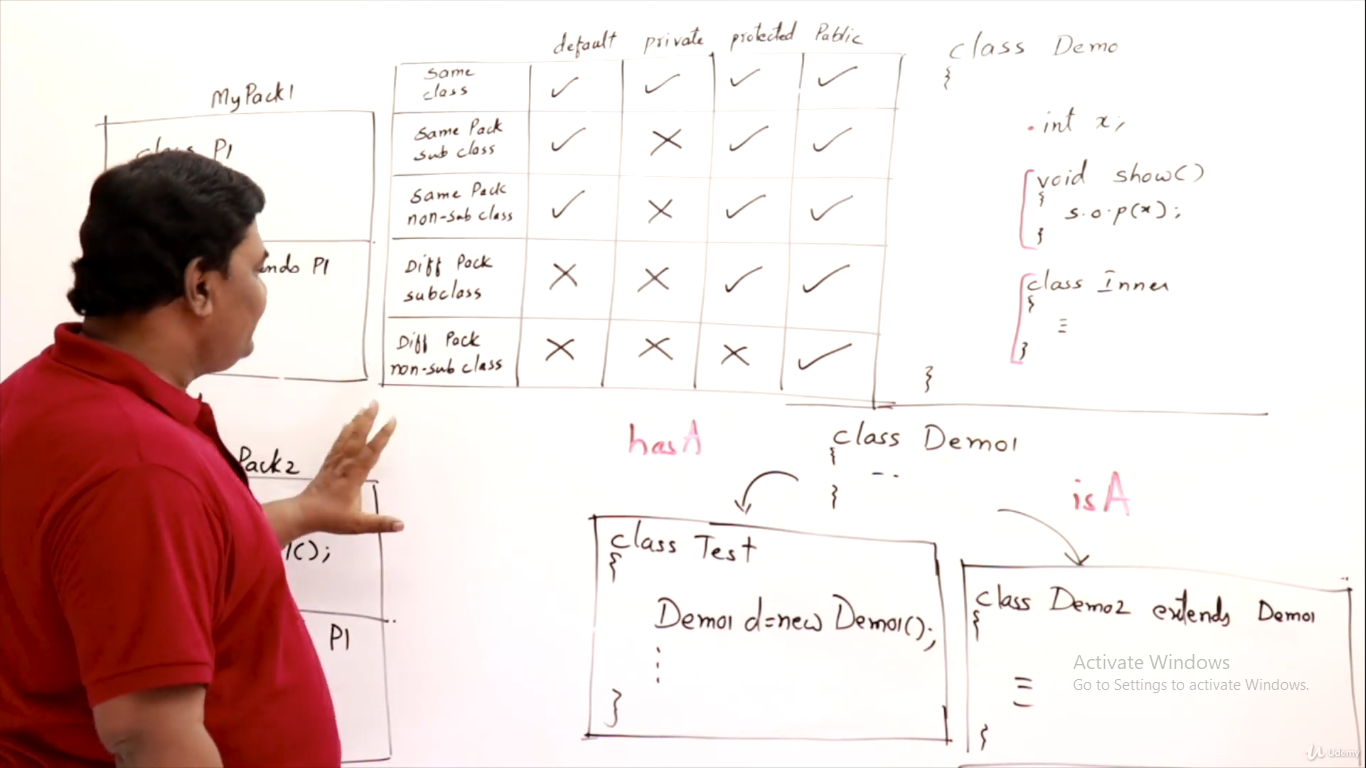 default private protected Public
MyPack1
same class ✓ ✓ ✓ ✓
same Pack sub class ✓ ✗ ✓ ✓
same Pack non-sub class ✓ ✗ ✓ ✓
Diff Pack subclass ✗ ✗ ✓ ✓
Diff Pack non-sub class ✗ ✗ ✗ ✓
class P1
P1
Pack2
();
P1
class Demo
{
int x;
void show()
{
s.o.p(x);
}
class Inner
{
}
}
hasA
class Demo1
{
}
isA
class Test
{
Demo1 d=new Demo1();
}
class Demo2 extends Demo1
{
}
Activate Windows
Go to Settings to activate Windows.
Udemy